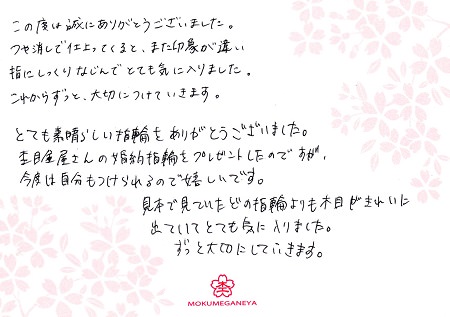 この度は誠にありがとうございました。
つや消しで仕上ってくると、また印象が違い
指にしっくりなじんでとても気に入りました。
これからずっと、大切につけていきます。
とても素晴らしい指輪をありがとうございました。
杢目金屋さんの婚約指輪をプレゼントしたのですが、
今度は自分もつけられるので嬉しいです。
見本で見ていたどの指輪よりも木目がきれいに
出ていてとても気に入りました。
ずっと大切にしていきます。
MOKUMEGANEYA